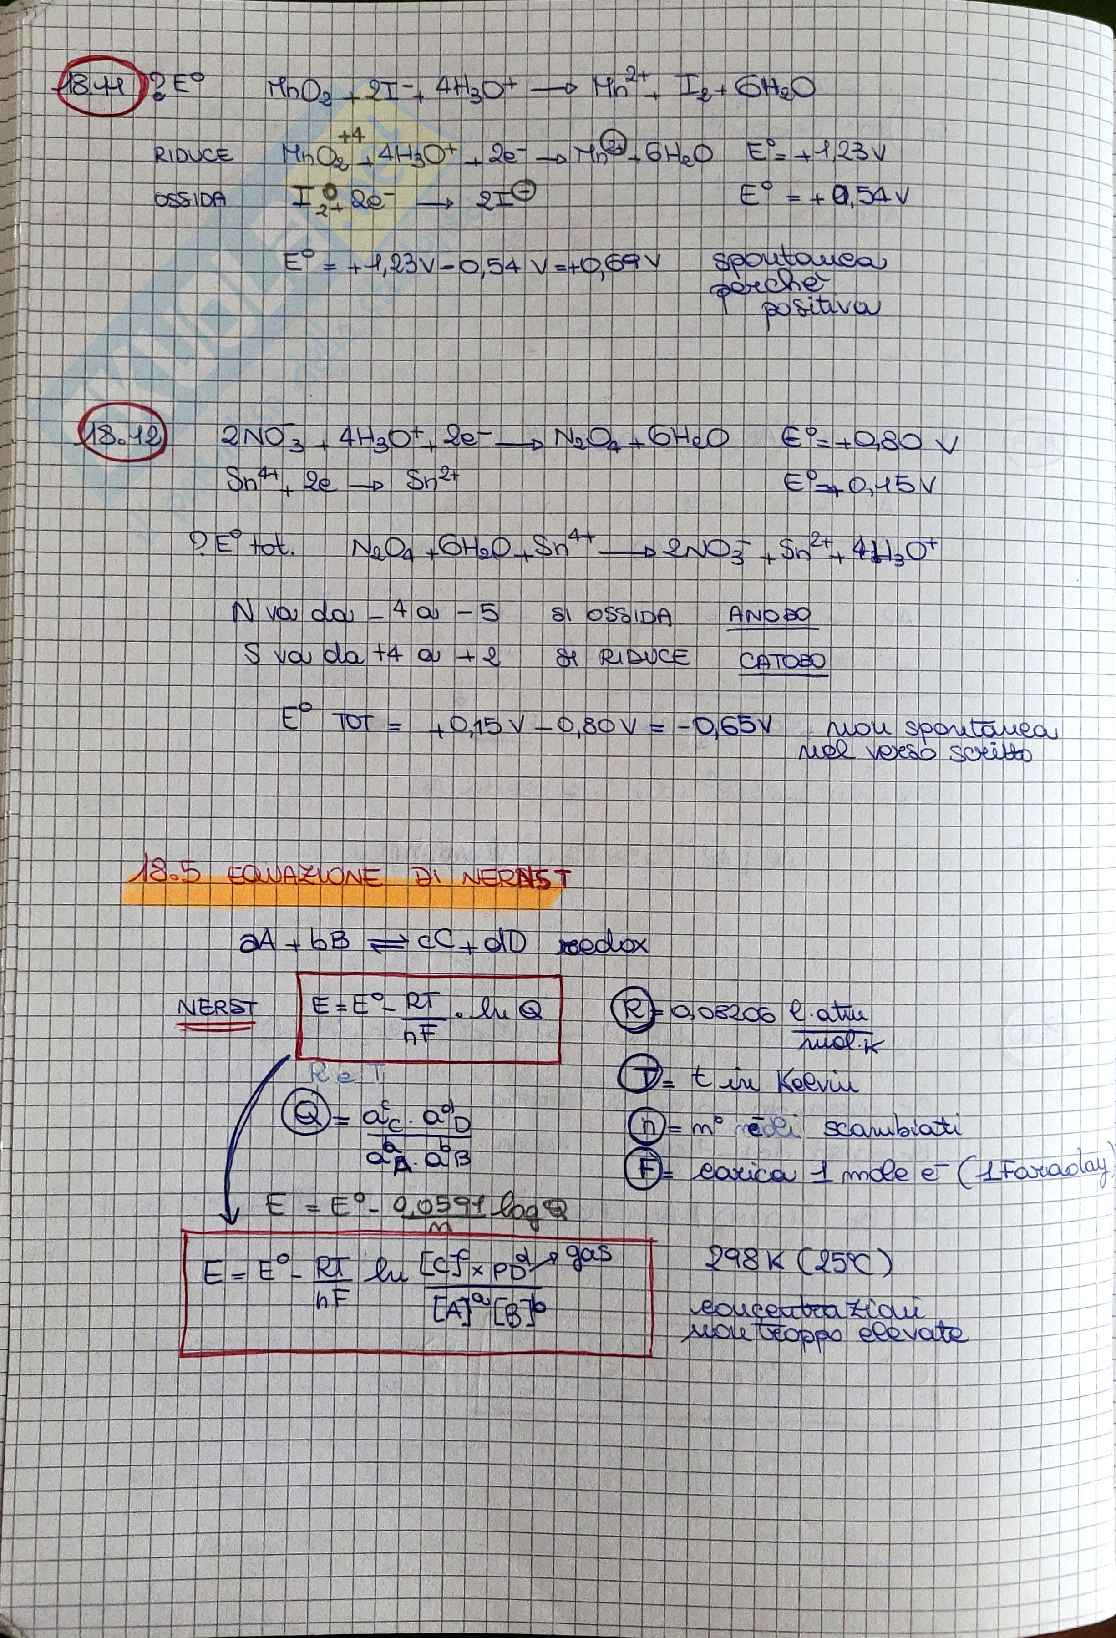 18.11 ? E° MnO2 + 2I- + 4H3O+ → Mn2+ + I2 + 6H2O
RIDUCE MnO2 +4 + 4H3O+ + 2e- → Mn2+ + 6H2O E° = +1,23 V
OSSIDA I2 0 + 2e- → 2I- E° = +0,54 V
E° = +1,23 V - 0,54 V = +0,69 V spontanea
perché
positiva
18.12 2NO3- + 4H3O+ + 2e- → N2O4 + 6H2O E° = +0,80 V
Sn4+ + 2e → Sn2+ E° = +0,15 V
? E° tot. N2O4 + 6H2O + Sn4+ → 2NO3- + Sn2+ + 4H3O+
N va da -4 a -5 SI OSSIDA ANODO
S va da +4 a +2 SI RIDUCE CATODO
E° TOT = +0,15 V - 0,80 V = -0,65 V non spontanea
nel verso scritto
18.5 EQUAZIONE DI NERNST
aA + bB ⇌ cC + dD redox
NERST E = E° - RT/nF · ln Q R = 0,08206 l·atm/mol·K
R e T
T = t in Kelvin
Q = a^c C · a^d D / a^a A · a^b B
n = n° scambiati
F = carica 1 mole e- (1 Faraday)
E = E° - 0,0591/n log Q
E = E° - RT/nF ln [C]^c × pD^d / [A]^a [B]^b → gas 298 K (25°C)
concentrazioni
non troppo elevate